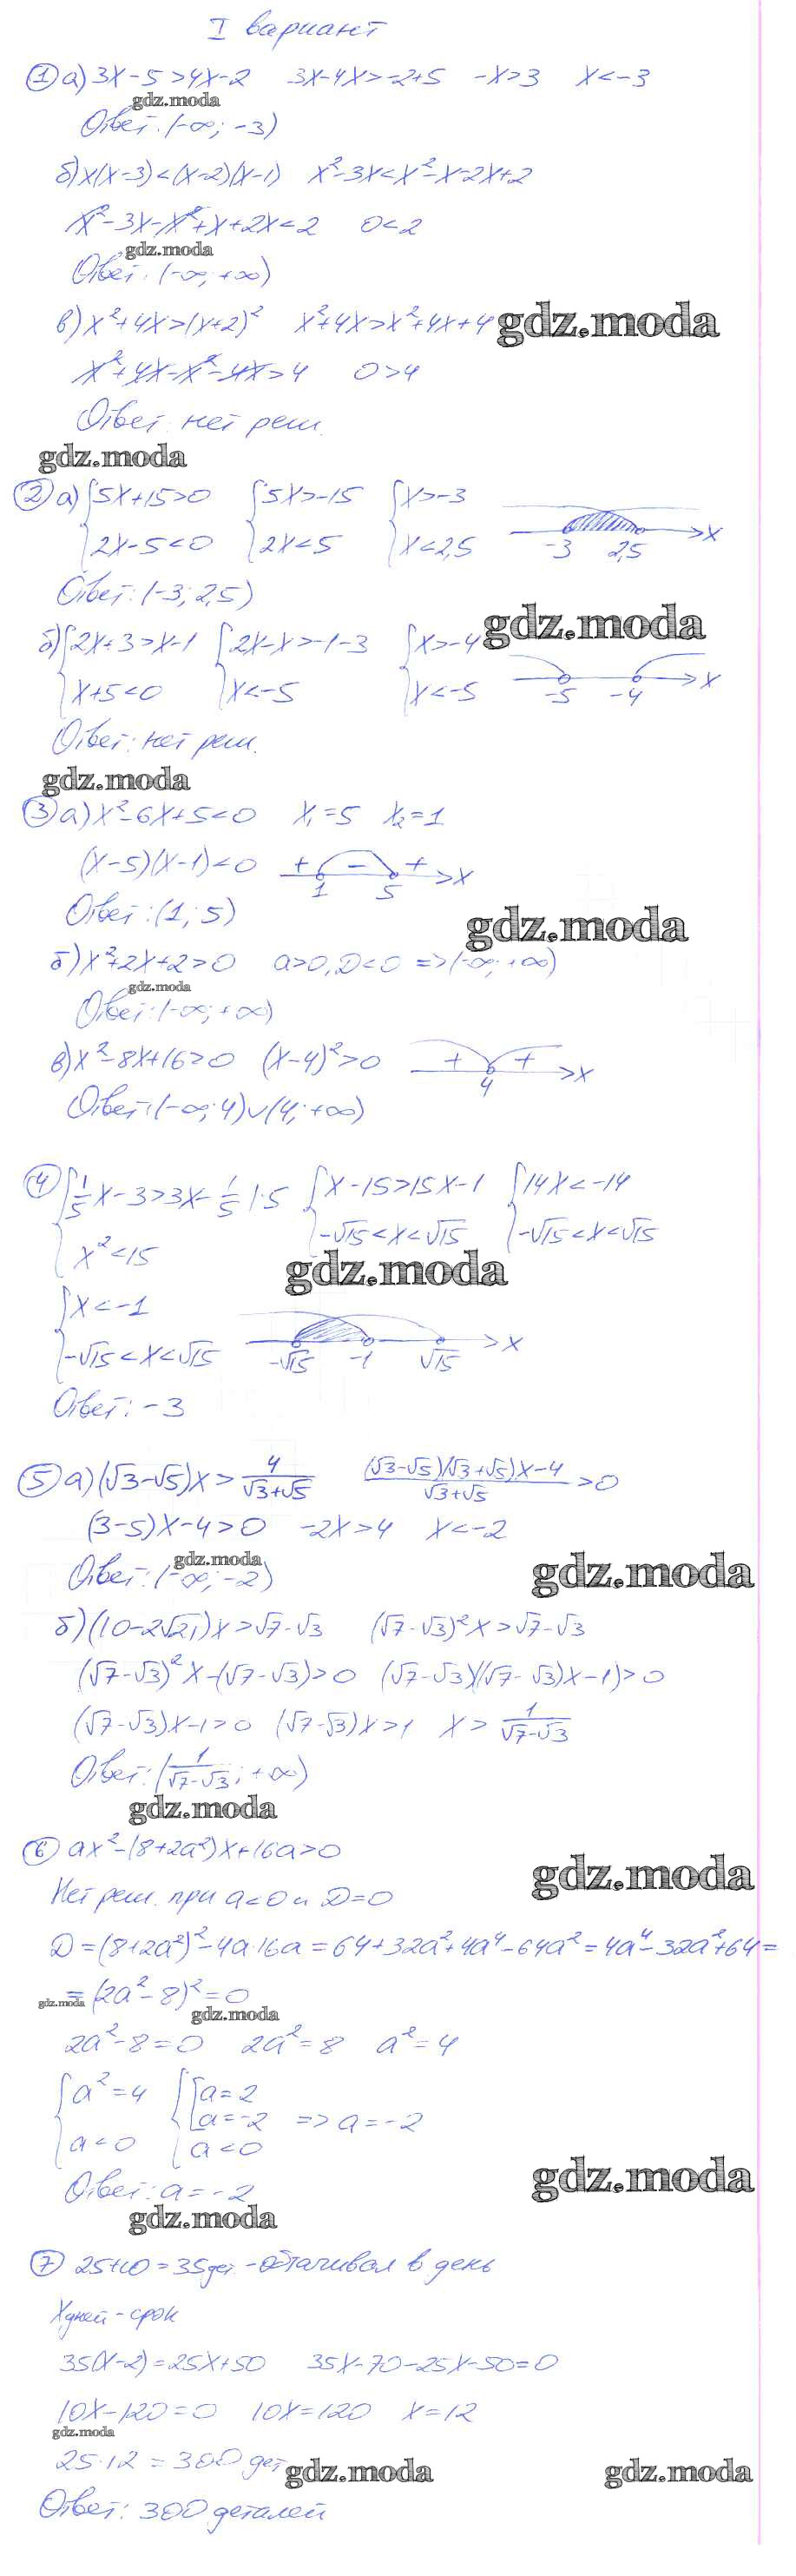 I вариант
① а) 3x-5>4x-2   3x-4x>-2+5   -x>3   x<-3
gdz.moda
Ответ: (-∞; -3)
б) x(x-3)<(x-2)(x-1)   x²-3x<x²-x-2x+2
x²-3x-x²+x+2x<2   0<2
gdz.moda
Ответ: (-∞; +∞)
в) x²+4x>(x+2)²   x²+4x>x²+4x+4   gdz.moda
x²+4x-x²-4x>4   0>4
Ответ: нет реш.
gdz.moda
② а) {5x+15>0   {5x>-15   {x>-3
{2x-5<0   {2x<5   {x<2,5   -3   2,5   x
Ответ: (-3; 2,5)
б) {2x+3>x-1   {2x-x>-1-3   {x>-4   gdz.moda
{x+5<0   {x<-5   {x<-5   -5   -4   x
Ответ: нет реш.
gdz.moda
③ а) x²-6x+5<0   x₁=5   x₂=1
(x-5)(x-1)<0   +   -   +   1   5   x
Ответ: (1; 5)
gdz.moda
б) x²+2x+2>0   a>0, D<0 => (-∞; +∞)
gdz.moda
Ответ: (-∞; +∞)
в) x²-8x+16>0   (x-4)²>0   +   +   4   x
Ответ: (-∞; 4)∪(4; +∞)
④ {1/5x-3>3x-1/5 |·5   {x-15>15x-1   {14x<-14
{x²<15   {-√15<x<√15   {-√15<x<√15
gdz.moda
{x<-1
{-√15<x<√15   -√15   -1   √15   x
Ответ: -3
⑤ а) (√3-√5)x > 4/(√3+√5)   ((√3-√5)(√3+√5)x-4)/(√3+√5) >0
(3-5)x-4>0   -2x>4   x<-2
gdz.moda
Ответ: (-∞; -2)   gdz.moda
б) (10-2√21)x>√7-√3   (√7-√3)²x>√7-√3
(√7-√3)²x-(√7-√3)>0   (√7-√3)((√7-√3)x-1)>0
(√7-√3)x-1>0   (√7-√3)x>1   x > 1/(√7-√3)
Ответ: (1/(√7-√3); +∞)
gdz.moda
⑥ ax²-(8+2a²)x+16a>0
gdz.moda
Нет реш. при a<0 и D=0
D=(8+2a²)²-4a·16a=64+32a²+4a⁴-64a²=4a⁴-32a²+64=
gdz.moda =(2a²-8)²=0
gdz.moda
2a²-8=0   2a²=8   a²=4
{a²=4   {[a=2
[a=-2   => a=-2
{a<0   {a<0
Ответ: a=-2   gdz.moda
gdz.moda
⑦ 25+10=35дет. - обтачивал в день
Xдней - срок
35(x-2)=25x+50   35x-70-25x-50=0
10x-120=0   10x=120   x=12
gdz.moda
25·12=300 дет   gdz.moda   gdz.moda
Ответ: 300 деталей